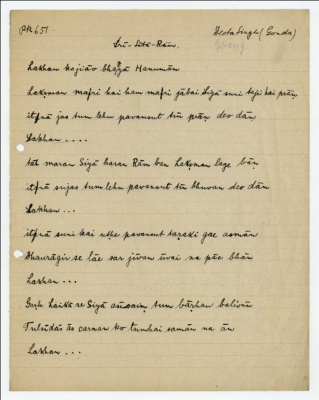 PK 651
Deota Singh (Gonda)
Srī-Sītā-Rām.
Lakhan kojiāv bhayyā Hanumān
Lakṣman mahri hai ham mahri jābai Siyā suni taji hai prān
itnā jas tum lehu pavansut tīn prān deo dān
Lakhan....
tāt maran Siyā haran Rām ben Lakṣman lage bān
itnā sujas tum lehu pavansut tīn bhuvan deo dān
Lakhan...
itnā suni kai uṭhe pavansut taṛaki gae asmān
dhaurāgir se lāe sar jīvan ūvai na pāe bhān
Lakhan...
Gaṛh Laṅkā se Siyā aisaiṇ tum bārhau balivān
Tulsīdās ās carnan ko tumhai samān na ān
Lakhan...